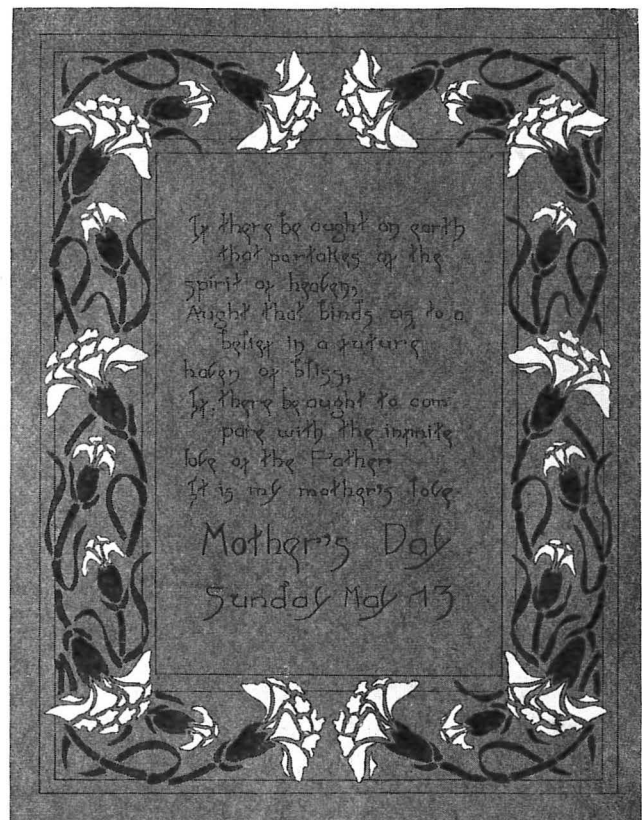 If there be aught on earth
that partakes of the
spirit of heaven,
Aught that binds us to a
belief in a future
haven of bliss,
If there be aught to com
pare with the infinite
love of the Father
It is my mother's love.
Mother's Day
Sunday May 13